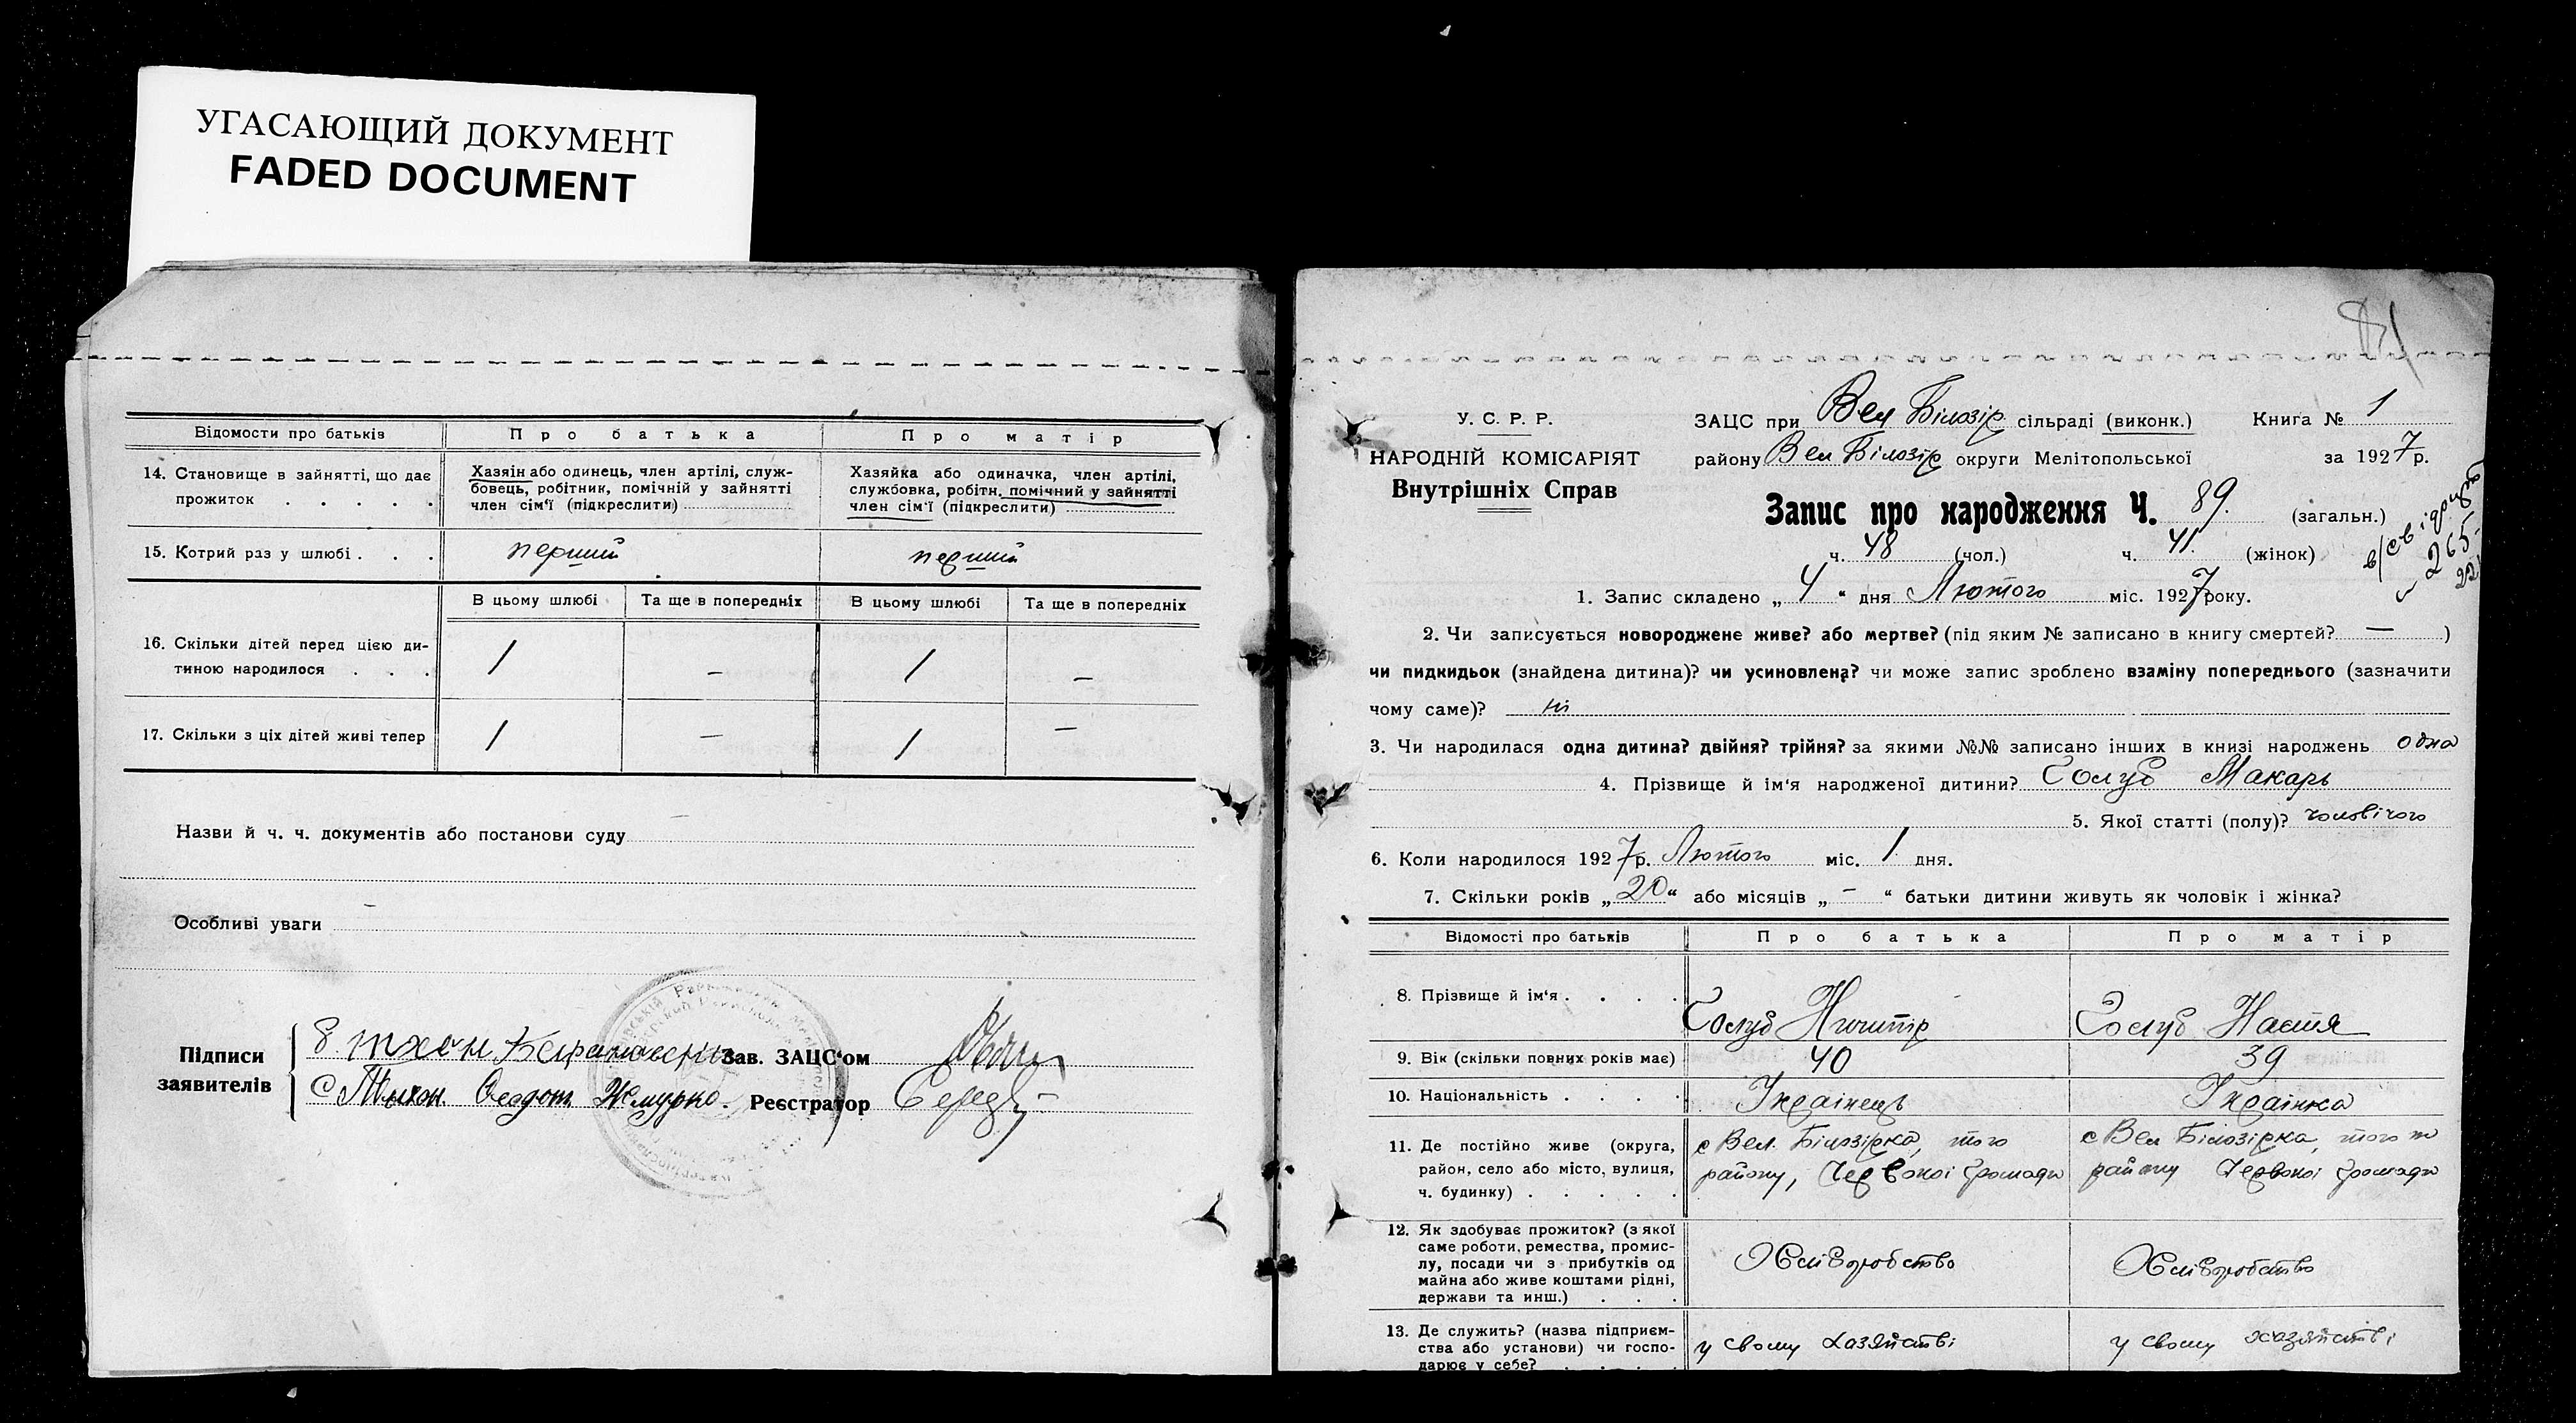 УГАСАЮЩИЙ ДОКУМЕНТ
FADED DOCUMENT
Відомости про батьків
Про батька
Про матір
14. Становище в зайнятті, що дає прожиток . . . . .
Хазяїн або одинець, член артілі, служ-
бовець, робітник, помічній у зайнятті
член сім'ї (підкреслити)
Хазяйка або одиначка, член артілі,
службовка, робітн. помічний у зайнятті
член сім'ї (підкреслити)
15. Котрий раз у шлюбі . . .
перший
перший
В цьому шлюбі
Та ще в попередніх
В цьому шлюбі
Та ще в попередніх
16. Скільки дітей перед цією ди-
тиною народилося . . .
/ – / –
17. Скільки з ціх дітей живі тепер
/ – / –
Назви й ч. ч. документів або постанови суду –
Особливі уваги –
Підписи
заявителів
Зав. ЗАЦС'ом
Реєстратор
У. С. Р. Р.
НАРОДНІЙ КОМІСАРІЯТ
Внутрішніх Справ
ЗАЦС при Вел Білозір сільраді (виконк.)
Книга № 1
району Вел Білозір округи Мелітопольської
за 1927р.
Запис про народження Ч. 89. (загальн.)
ч. 48 (чол.) ч. 41. (жінок)
265
22
1. Запис складено „4“ дня Лютого міс. 1927року.
2. Чи записується новороджене живе? або мертве? (під яким № записано в книгу смертей? — )
чи пидкидьок (знайдена дитина)? чи усиновлена? чи може запис зроблено взаміну попереднього (зазначити
чому саме)? ні
3. Чи народилася одна дитина? двійня? трійня? за якими №№ записано інших в книзі народжень одна
4. Прізвище й ім'я народженої дитини? Голуб Макарь
5. Якої статті (полу)? чоловічого
6. Коли народилося 1927р. Лютого міс. 1 дня.
7. Скільки років „20“ або місяців „–“ батьки дитини живуть як чоловік і жінка?
Відомості про батьків
Про батька
Про матір
8. Прізвище й ім'я . . . .
Голуб Ничипір
Голуб Настя
9. Вік (скільки повних років має)
40
39
10. Національність . . . .
Українець
Українка
11. Де постійно живе (округа,
район, село або місто, вулиця,
ч. будинку) . . . . .
с Вел. Білозірка, того
району, Червоної громади
с Вел Білозірка, того ж
району Червоної громади
12. Як здобуває прожиток? (з якої
саме роботи, ремества, промис-
лу, посади чи з прибутків од
майна або живе коштами рідні,
держави та инш.) . . .
Хліборобство
Хліборобство
13. Де служить? (назва підприєм-
ства або установи) чи госпо-
дарює у себе? . . . .
у свому хазяйстві
у свому хазяйстві